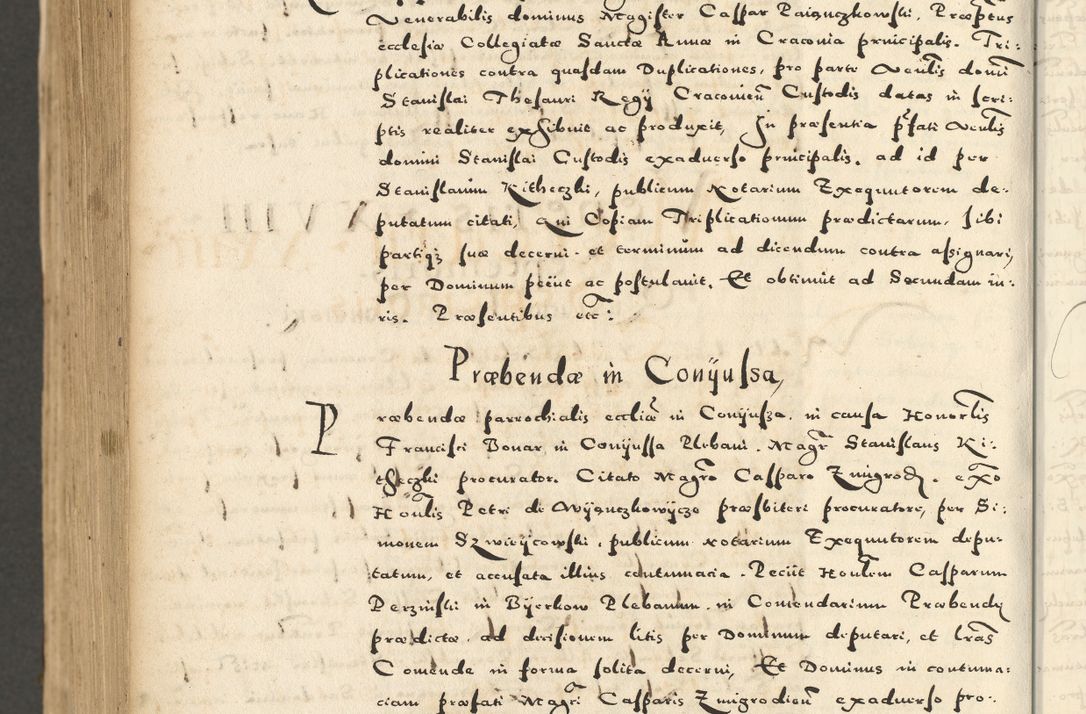 Venerabilis dominus Magister Caspar Paiąnczkowski, Præptus
ecclesiæ Collegiatæ Sanctæ Annæ in Craconia principalis. Tri:
plicationes contra quasdam Duplicationes, pro parte Venlis domi
Stanislai Thesauri Regij Cracouien Custodis datas in scri:
ptis realiter exhibuit ac produxit, In præsentia pfati Venlis
domini Stanislai Custodis exaduerso principalis. ad id per
Stanislaum Kitheczki, publicum Notarium Exequutorem de:
putatum citati, qui Copiam Triplicationum prædictarum, sibi
partiqz suæ decerni. et terminum ad dicendum contra assignari,
per Dominum petiit ac postulauit. Et obtinuit ad Secundam iu:
ris. Præsentibus etc:
Præbendæ in Conijussa,
Præbendæ parrochialis eccliæ in Conijusza. in causa Honorlis
Francisci Bonar, in Conijussa Plebani. Magr Stanislaus Ki:
theczki procurator. Citato Magro Casparo Zmigrod. exo
Honlis Petri de Wyąnczkowycze præsbiteri procuratore, per Si:
monem Szwieijcowski, publicum Notarium Exequutorem depu:
tatum, et accusata illius contumacia. Peciit Honlem Casparum
Perzinski in Bijerkow Plebanum. in Comendarium Præbendę
prædictæ. ad decisionem litis per Dominum deputari, et lras
Comende in forma solita decerni, Et Dominus in contuma:
ciam præfati Magri Casparis Zmigrodien exaduerso pro: